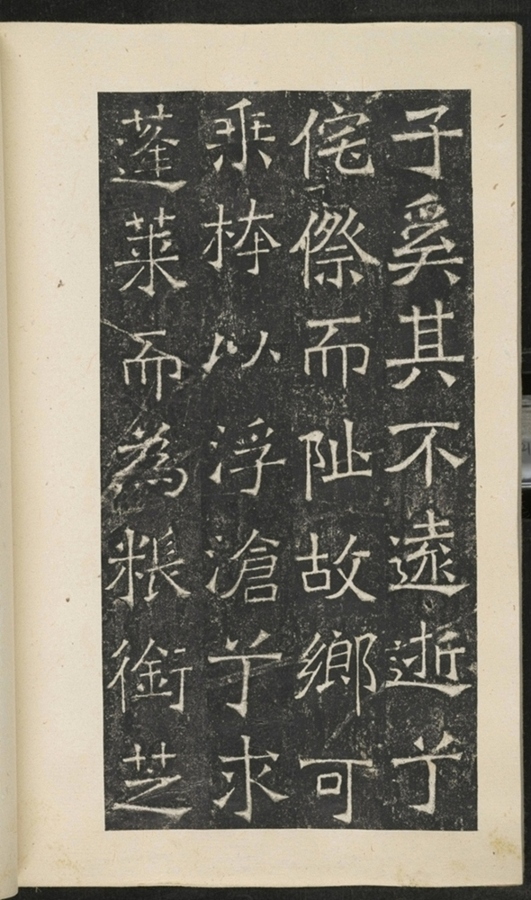 子奚其不遠逝兮
侘傺而阯故鄉可
乗桴以浮滄兮求
蓬莱而為粻銜芝